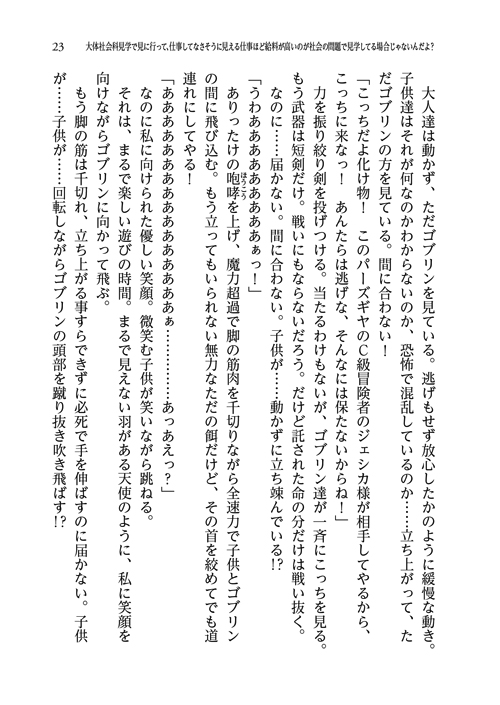 23
大体社会科見学で見に行って、仕事してなさそうに見える仕事ほど給料が高いのが社会の問題で見学してる場合じゃないんだよ?
大人達は動かず、ただゴブリンを見ている。逃げもせず放心したかのように緩慢な動き。
子供達はそれが何なのかわからないのか、恐怖で混乱しているのか……立ち上がって、た
だゴブリンの方を見ている。間に合わない!
「こっちだよ化け物! このパーズギヤのC級冒険者のジェシカ様が相手してやるから、
こっちに来なっ! あんたらは逃げな、そんなには保たないからね!」
力を振り絞り剣を投げつける。当たるわけもないが、ゴブリン達が一斉にこっちを見る。
もう武器は短剣だけ。戦いにもならないだろう。だけど託された命の分だけは戦い抜く。
なのに……届かない。間に合わない。子供が……動かずに立ち竦んでいる!?
「うわあああああああああぁっ!」
ありったけの咆哮を上げ、魔力超過で脚の筋肉を千切りながら全速力で子供とゴブリン
の間に飛び込む。もう立ってもいられない無力なただの餌だけど、その首を絞めてでも道
連れにしてやる!
「ああああああああああああああぁ……………あっあえっ?」
なのに私に向けられた優しい笑顔。微笑む子供が笑いながら跳ねる。
それは、まるで楽しい遊びの時間。まるで見えない羽がある天使のように、私に笑顔を
向けながらゴブリンに向かって飛ぶ。
もう脚の筋は千切れ、立ち上がる事すらできずに必死で手を伸ばすのに届かない。子供
が……子供が……回転しながらゴブリンの頭部を蹴り抜き吹き飛ばす!?